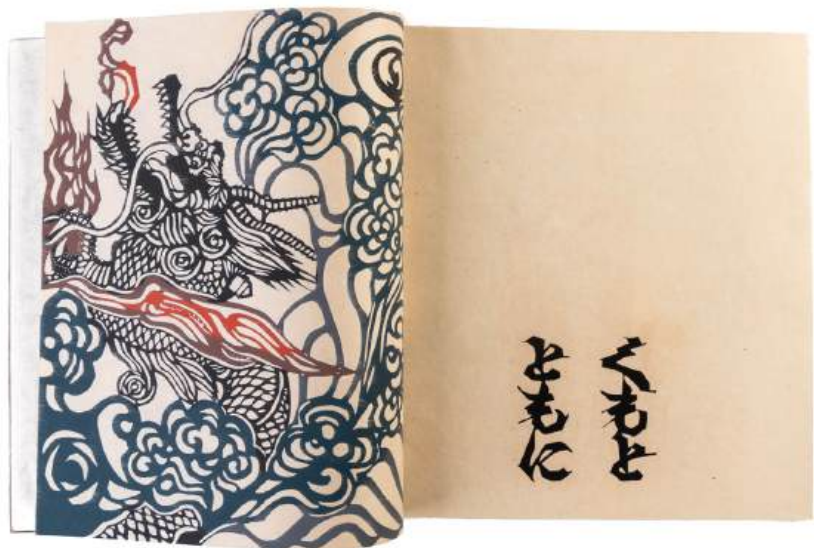 くもと
ともに